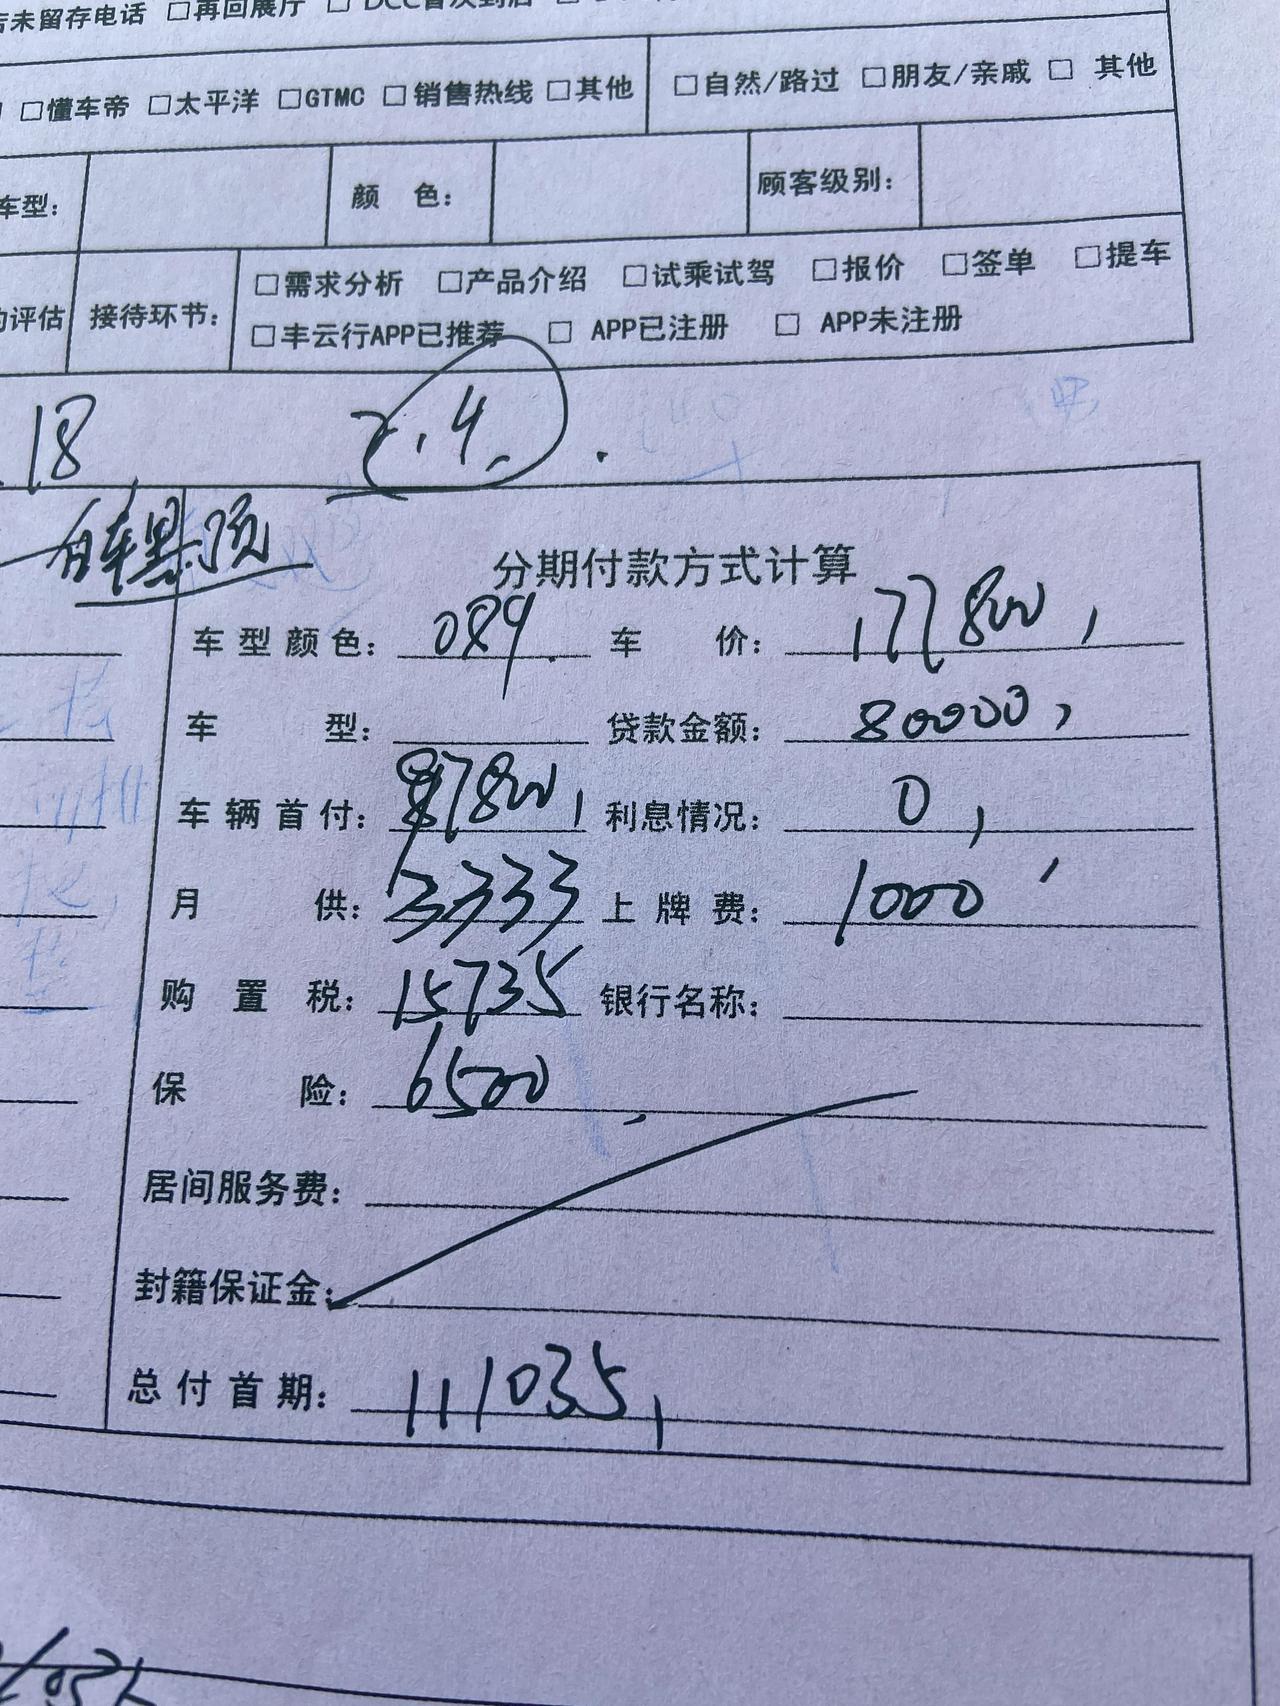 未留存电话 □再回展厅 □
□懂车帝 □太平洋 □GTMC □销售热线 □其他 □自然/路过 □朋友/亲戚 □ 其他
车型: 颜 色: 顾客级别:
评估 接待环节: □需求分析 □产品介绍 □试乘试驾 □报价 □签单 □提车
□丰云行APP已推荐 □ APP已注册 □ APP未注册
18 2.4.
白车黑顶
分期付款方式计算
车型颜色: 089. 车 价: 177800,
车 型: 贷款金额: 80000,
车辆首付: 87800, 利息情况: 0,
月 供: 3333 上牌费: 1000
购置税: 15735 银行名称:
保 险: 6500
居间服务费:
封籍保证金:
总付首期: 111035,